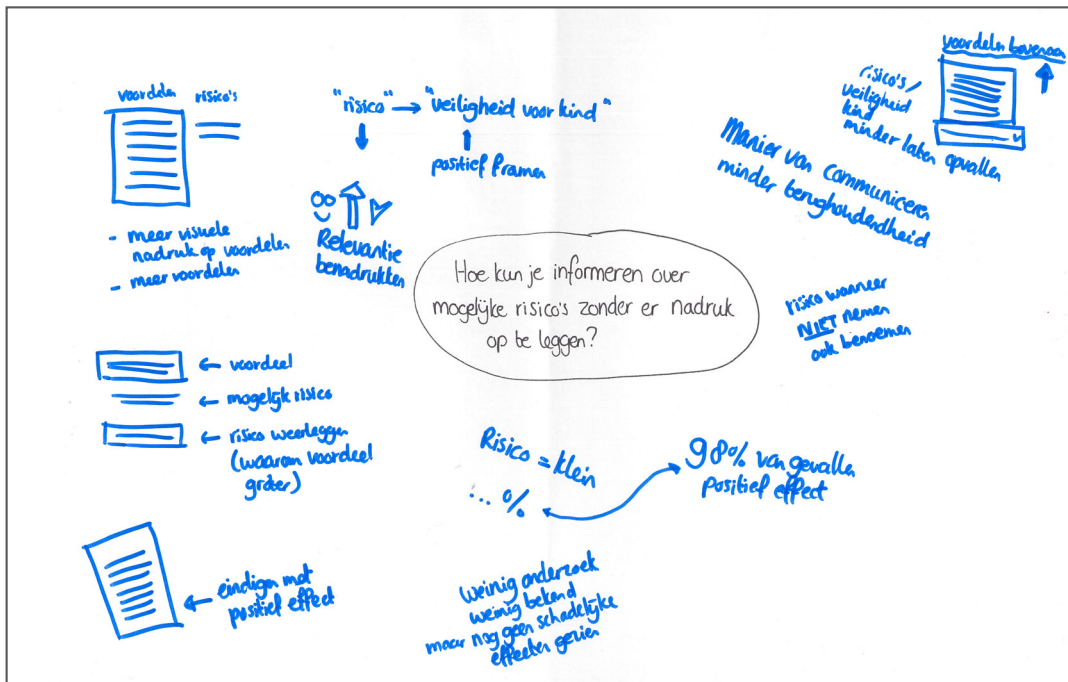 voordelen risico's
- meer visuele
nadruk op voordelen
- meer voordelen
"risico" → "veiligheid voor kind"
positief framen
Relevantie
benadrukken
voordelen bovenaan
risico's /
veiligheid
kind
minder laten opvallen
Manier van communiceren
minder terughoudendheid
Hoe kun je informeren over
mogelijke risico's zonder er nadruk
op te leggen?
risico wanneer
NIET nemen
ook benoemen
← voordeel
← mogelijk risico
← risico weerleggen
(waarom voordeel
groter)
Risico = klein
... %
98% van gevallen
positief effect
← eindigen met
positief effect
weinig onderzoek
weinig bekend
maar nog geen schadelijke
effecten gezien